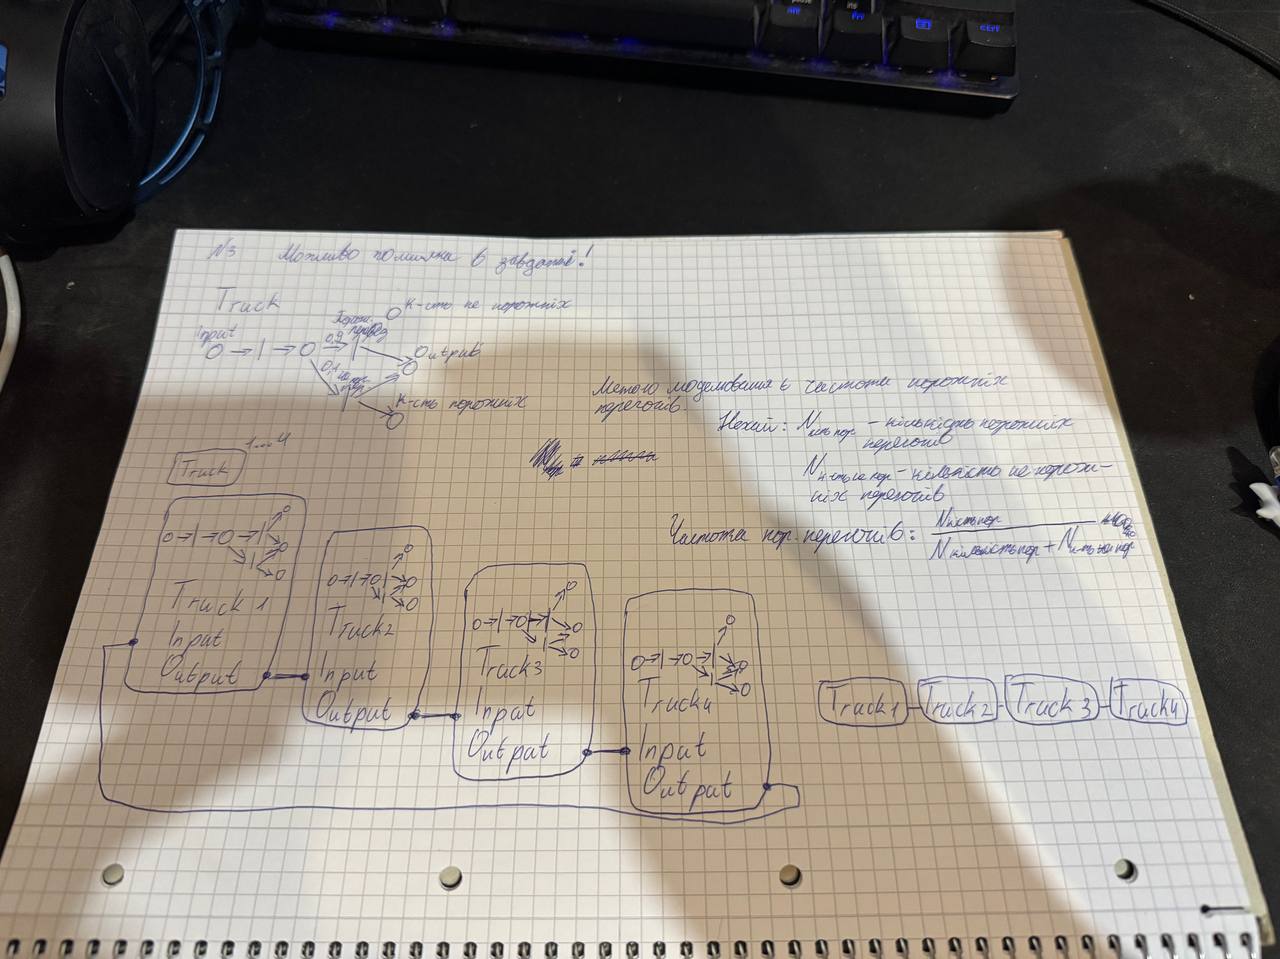 N3 Можливо помилка в завданні!
Truck
К-сть не порожніх
Input
0,9
перегод
Output
0,1
К-сть порожніх
1...4
Truck
Метою моделювання є частота порожніх
перегонів.
Нехай: N к-сть пор - кількість порожніх
перегонів
N к-сть не пор - кількість не порож-
ніх перегонів
Частота пор. перегонів: N к-сть пор
N кількість пор + N к-сть не пор
Truck 1
Input
Output
Truck2
Input
Output
Truck3
Input
Output
Truck4
Input
Output
Truck1 Truck2 Truck3 Truck4